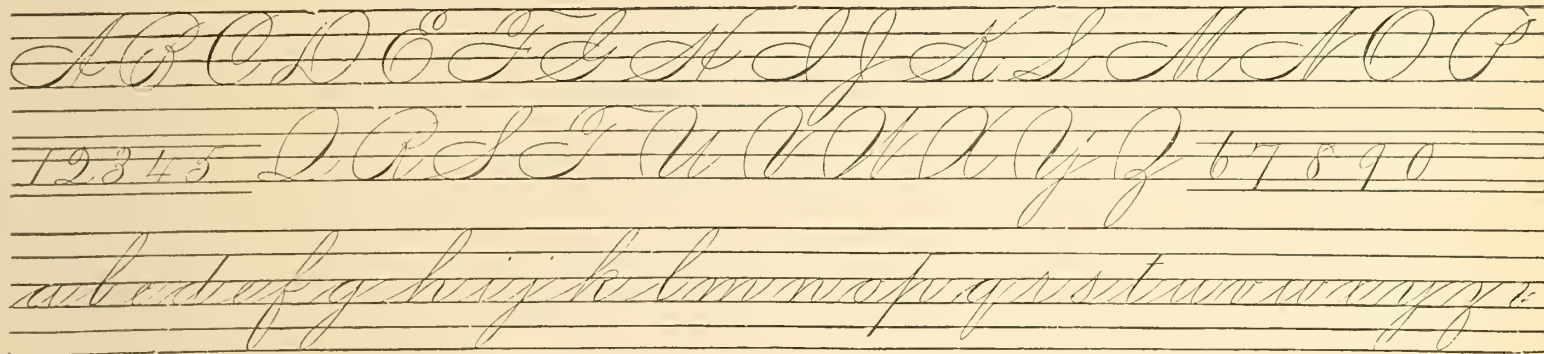 A B C D E F G H I J K L M N O P
1 2 3 4 5 Q R S T U V W X Y Z 6 7 8 9 0
a b c d e f g h i j k l m n o p q r s t u v w x y z